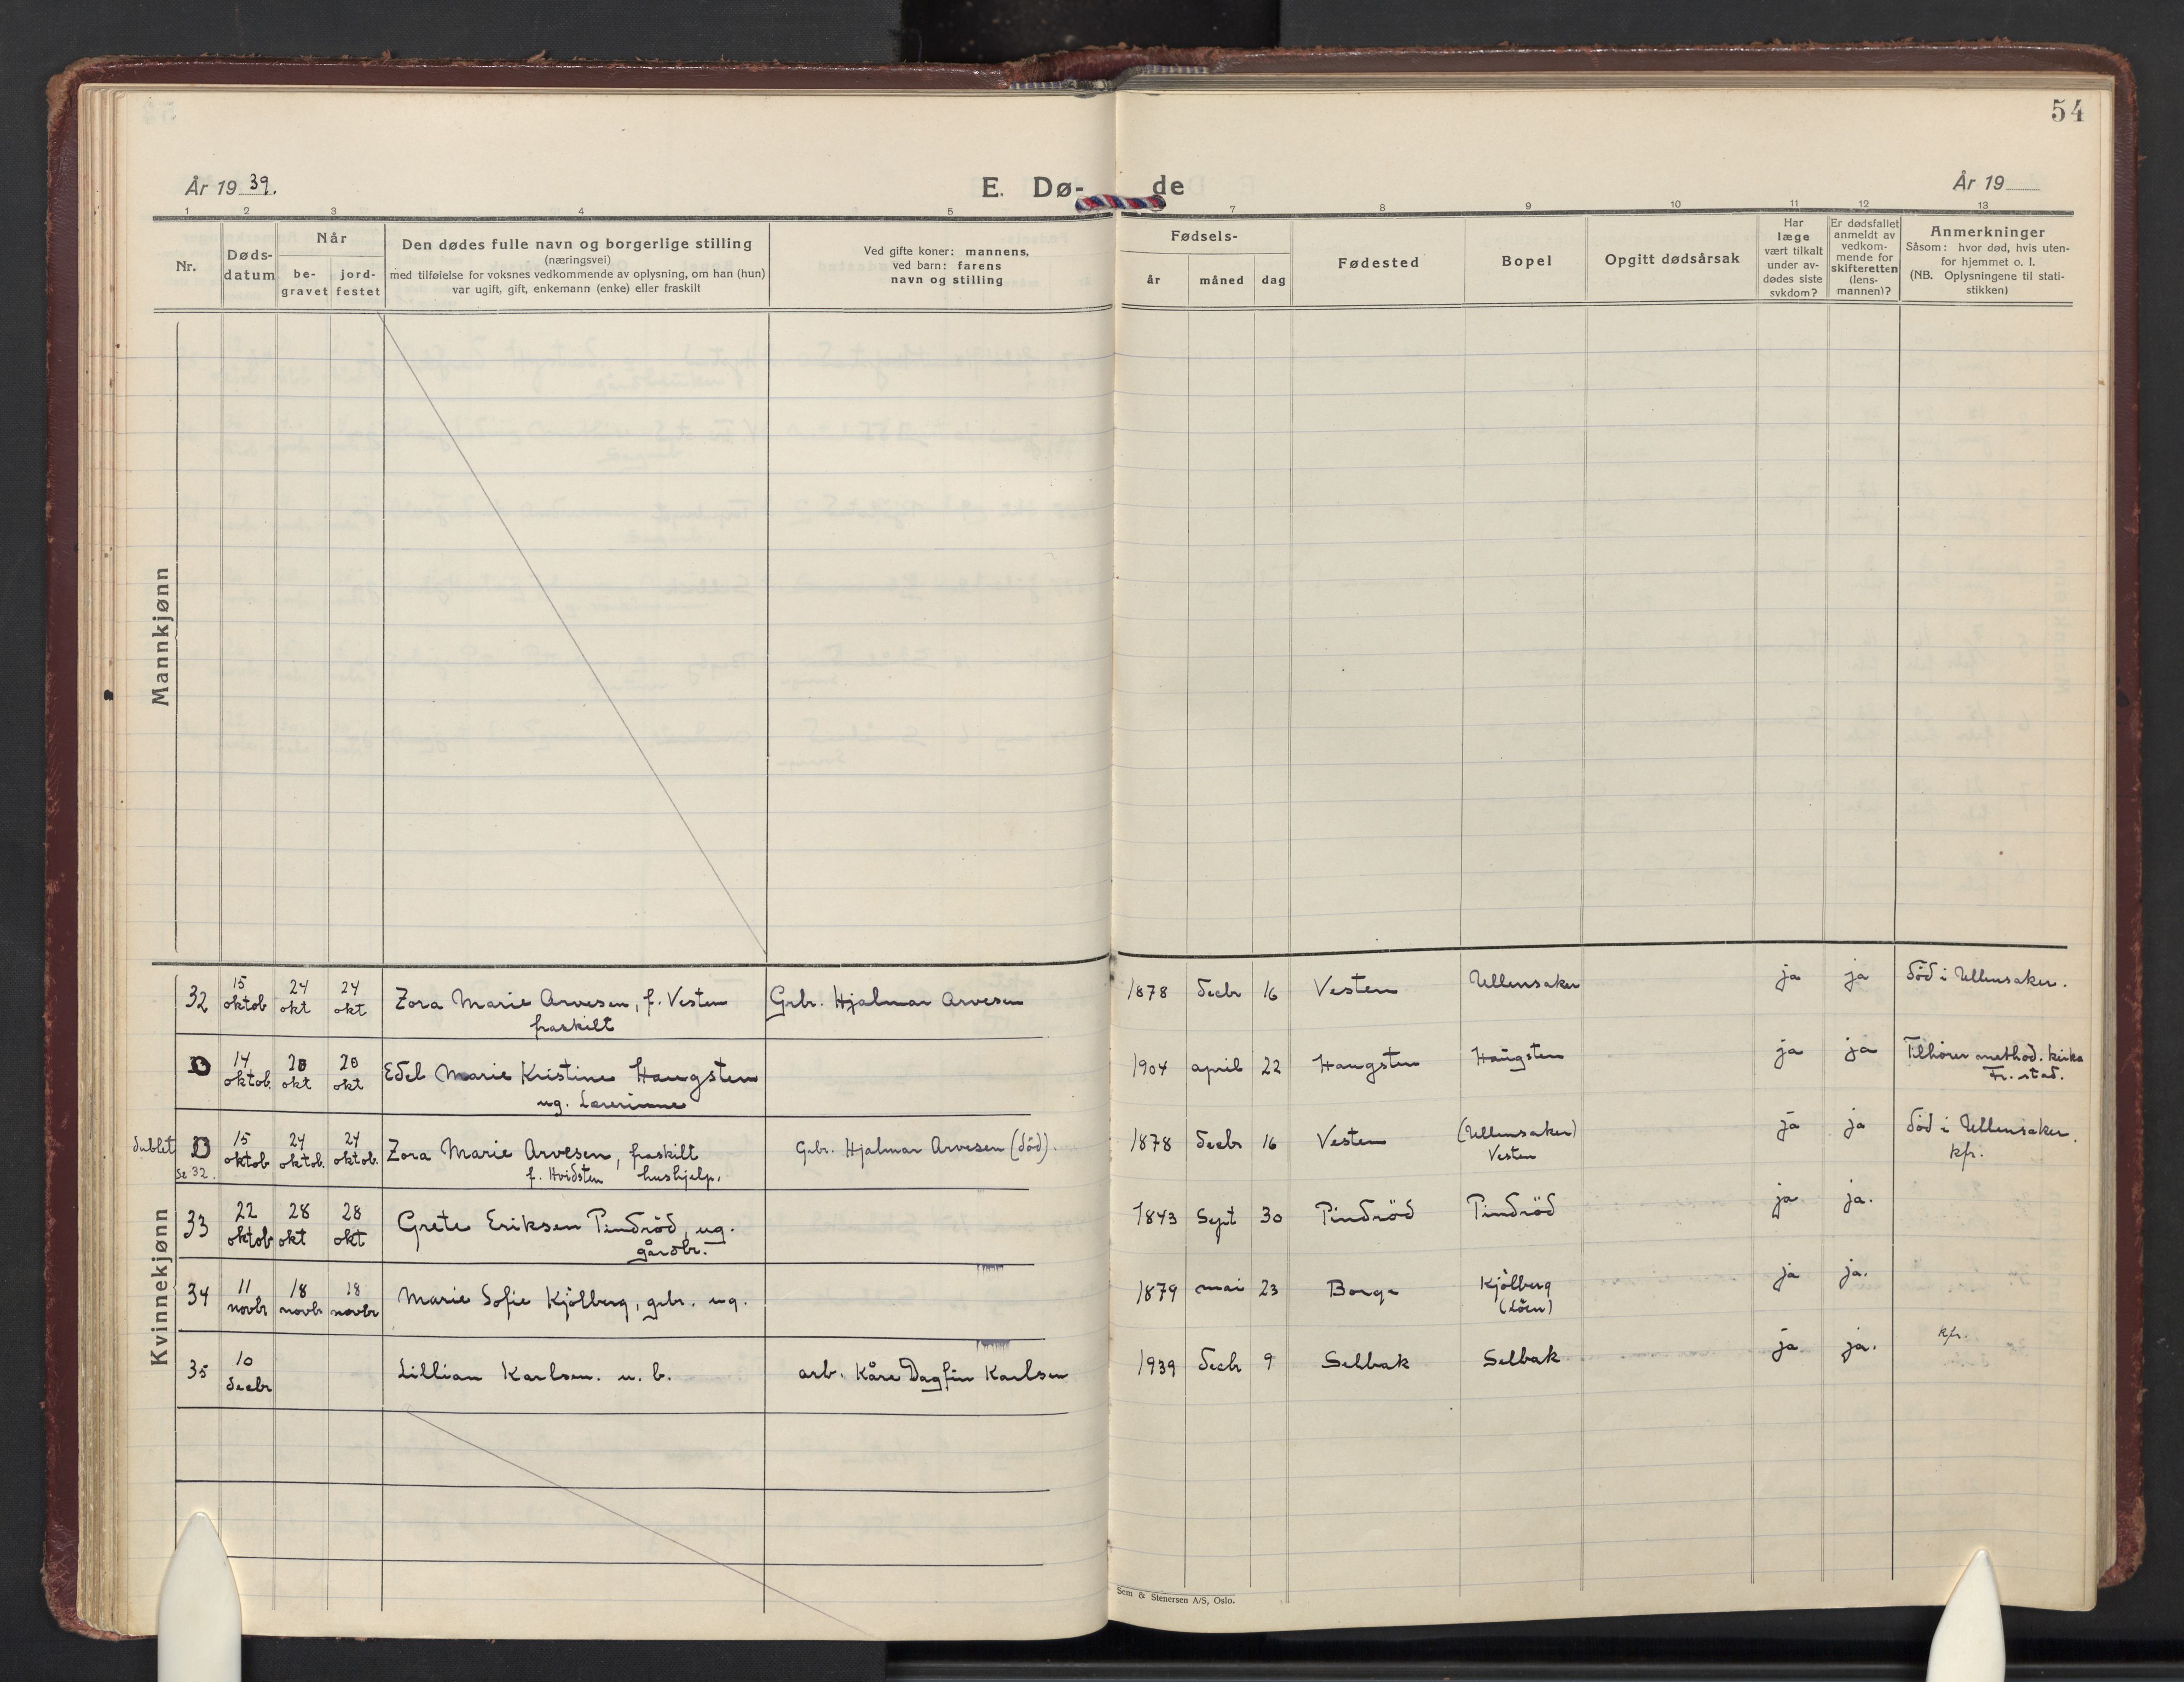 54
År 1939.
E. Dø-
de
År 19
1 2 3 4 5 7 8 9 10 11 12 13
Nr.
Døds-
datum
Når
be-
gravet
jord-
festet
Den dødes fulle navn og borgerlige stilling
(næringsvei)
med tilføielse for voksnes vedkommende av oplysning, om han (hun)
var ugift, gift, enkemann (enke) eller fraskilt
Ved gifte koner: mannens,
ved barn: farens
navn og stilling
Fødsels-
år måned dag
Fødested
Bopel
Opgitt dødsårsak
Har
læge
vært tilkalt
under av-
dødes siste
sykdom?
Er dødsfallet
anmeldt av
vedkom-
mende for
skifteretten
(lens-
mannen)?
Anmerkninger
Såsom: hvor død, hvis uten-
for hjemmet o. l.
(NB. Oplysningene til stati-
stikken)
Mannkjønn
Kvinnekjønn
32 15 oktob 24 okt 24 okt Zora Marie Arvesen, f. Vesten Grbr. Hjalmar Arvesen 1878 decbr 16 Vesten Ullensaker ja ja død i Ullensaker.
fraskilt
14 oktob. 20 okt 20 okt Edel Marie Kristine Haugsten 1904 april 22 Haugsten Haugsten ja ja Tilhører method. kirke
ug. Lærerinne Fr. stad.
dublet 15 oktob 24 oktob. 24 oktob. Zora Marie Arvesen, fraskilt Grbr. Hjalmar Arvesen (død). 1878 decbr 16 Vesten (Ullensaker) ja ja død i Ullensaker.
Se 32. f. Hvidsten hushjelp. Vesten kfr.
33 22 oktob 28 okt 28 okt Grete Eriksen Pindrød, ug. 1843 Sept 30 Pindrød Pindrød ja ja.
gårdbr.
34 11 novbr 18 novbr 18 novbr Marie Sofie Kjølberg, grbr. ug. 1879 mai 23 Borge Kjølberg ja ja.
(Löen)
35 10 decbr Lillian Karlsen. u. b. arb. Kåre Dagfin Karlsen 1939 decbr 9 Selbak Selbak ja ja. kfr.
Sem & Stenersen A/S, Oslo.